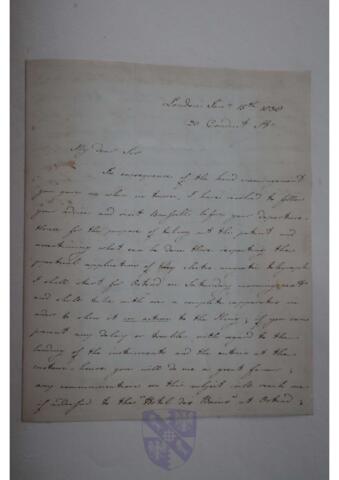 London Sept 15th 1838
20 Conduit St
My dear Sir
In consequence of the kind encouragement
you gave me when in town, I have resolved to follow
your advice and visit Bruxelles before your departure
thence for the purpose of taking out the patent and
ascertaining what can be done there respecting the
practical application of my electro magnetic telegraph
I shall start for Ostend on Saturday morning next
and shall take with me a complete apparatus in
order to show it in action to the King; if you can
prevent any delay or trouble with regard to the
landing of the instruments and the entrance at the
custom-house you will do me a great favor;
any communication on this subject will reach me
if addressed to the "Hotel des Bains" at Ostend;